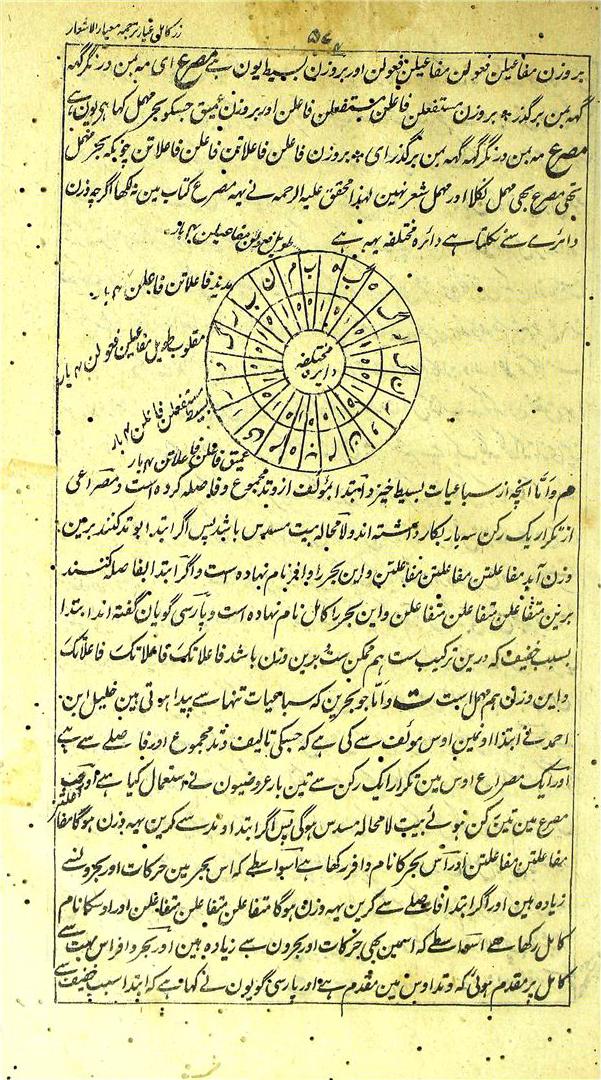 زر کامل عیار ترجمہ معیار الاشعار
۵۷
بروزن مفاعیلن فعولن مفاعیلن فعولن اور بروزن بسیط یون ہے مصرع ای مہ بمن در نگر گہہ
گہہ بمن بر گذر بروزن مستفعلن فاعلن مستفعلن فاعلن اور بروزن عمیق جسکو بحر مہمل کہا ہی یون ہے
مصرع مہ بمن در نگر گہہ گہہ بمن بر گذر ای بروزن فاعلن فاعلاتن فاعلن فاعلاتن چونکہ بحر مہمل
تھی مصرع بھی مہمل نکلا اور مہمل شعر نہین لہذا محقق علیہ الرحمہ نے یہہ مصرع کتاب مین نہ لکھا اگرچہ وزن
دائرے سے نکلتا ہے دائرہ مختلفہ یہہ ہے
طویل فعولن مفاعیلن بہ بار
مدید فاعلاتن فاعلن بہ بار
مقلوب طویل مفاعیلن فعولن بہ بار
بسیط مستفعلن فاعلن بہ بار
عمیق فاعلن فاعلاتن بہ بار
دائرہ مختلفہ
م و امّا انچہ از سباعیات بسیط خیزد ابتدا بمؤلف از وتد مجموع و فاصلہ کردہ است و مصراعی
از تکرار یک رکن سہ بار بکار داشتہ اند و لا محالہ بیت مسدس باشد پس اگر ابتدا بوتد کنند برین
وزن آید مفاعلتن مفاعلتن مفاعلتن و این بحر را وافر نام نہادہ است و اگر ابتدا بفاصلہ کنند
برین متفاعلن متفاعلن متفاعلن و این بحر را کامل نام نہادہ است و پارسی گویان گفتہ اند ابتدا
بسبب خفیف کہ درین ترکیب ست ہم ممکن ست برین وزن باشد فاعلاتک فاعلاتک فاعلاتک
و این وزن ہم مہمل است ت و امّا جو بحرین کہ سباعیات تنہا سے پیدا ہوتی ہین خلیل ابن
احمد نے ابتدا اونمین اوس مؤلف سے کی ہے کہ جسکی تالیف وتد مجموع اور فاصلے سے ہے
اور ایک مصراع اوس مین تکرار ایک رکن سے تین بار عروضیون نے استعمال کیا ہے اور جب
مصرع مین تین رکن ہوئے بیت لا محالہ مسدس ہوگی پس اگر ابتدا وتد سے کرین یہہ وزن ہوگا مفاعلتن
مفاعلتن مفاعلتن اور اس بحر کا نام وافر رکھا ہے اسواسطے کہ اس بحر مین حرکات اور بحرونسے
زیادہ ہین اور اگر ابتدا فاصلے سے کرین یہہ وزن ہوگا متفاعلن متفاعلن متفاعلن اور اوسکا نام
کامل رکھا ہے اسواسطے کہ اسمین بھی حرکات اور بحرون سے زیادہ ہین اور بحر وافر اس جہت سے
کامل پر مقدم ہوئی کہ وتد اوس مین مقدم ہے اور پارسی گویون نے کہا ہے کہ ابتدا سبب خفیف سے